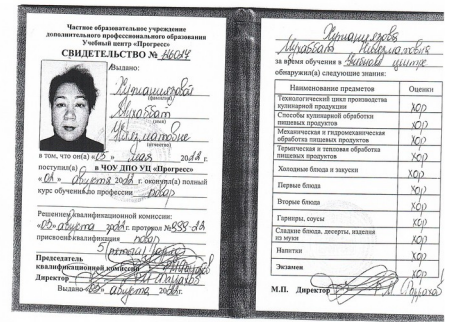 Частное образовательное учреждение
дополнительного профессионального образования
Учебный центр «Прогресс»
СВИДЕТЕЛЬСТВО №
Выдано:
(фамилия)
(имя)
(отчество)
в том, что он(а) «03» мая 2022 г.
поступил(а) в ЧОУ ДПО УЦ «Прогресс»
августа 2022 г. окончил(а) полный
курс обучения по профессии повар
Решением квалификационной комиссии:
«03» августа 2022 г. протокол № 999-22
присвоена квалификация повар
5 (пятый)
Председатель
квалификационной комиссии
Директор
Выдано «03» августа 2022 г.
за время обучения в
обнаружил(а) следующие знания:
Наименование предметов Оценки
Технологический цикл производства кулинарной продукции хор
Способы кулинарной обработки пищевых продуктов хор
Механическая и гидромеханическая обработка пищевых продуктов хор
Термическая и тепловая обработка пищевых продуктов хор
Холодные блюда и закуски хор
Первые блюда хор
Вторые блюда хор
Гарниры, соусы хор
Сладкие блюда, десерты, изделия из муки хор
Напитки хор
Экзамен хор
М.П. Директор